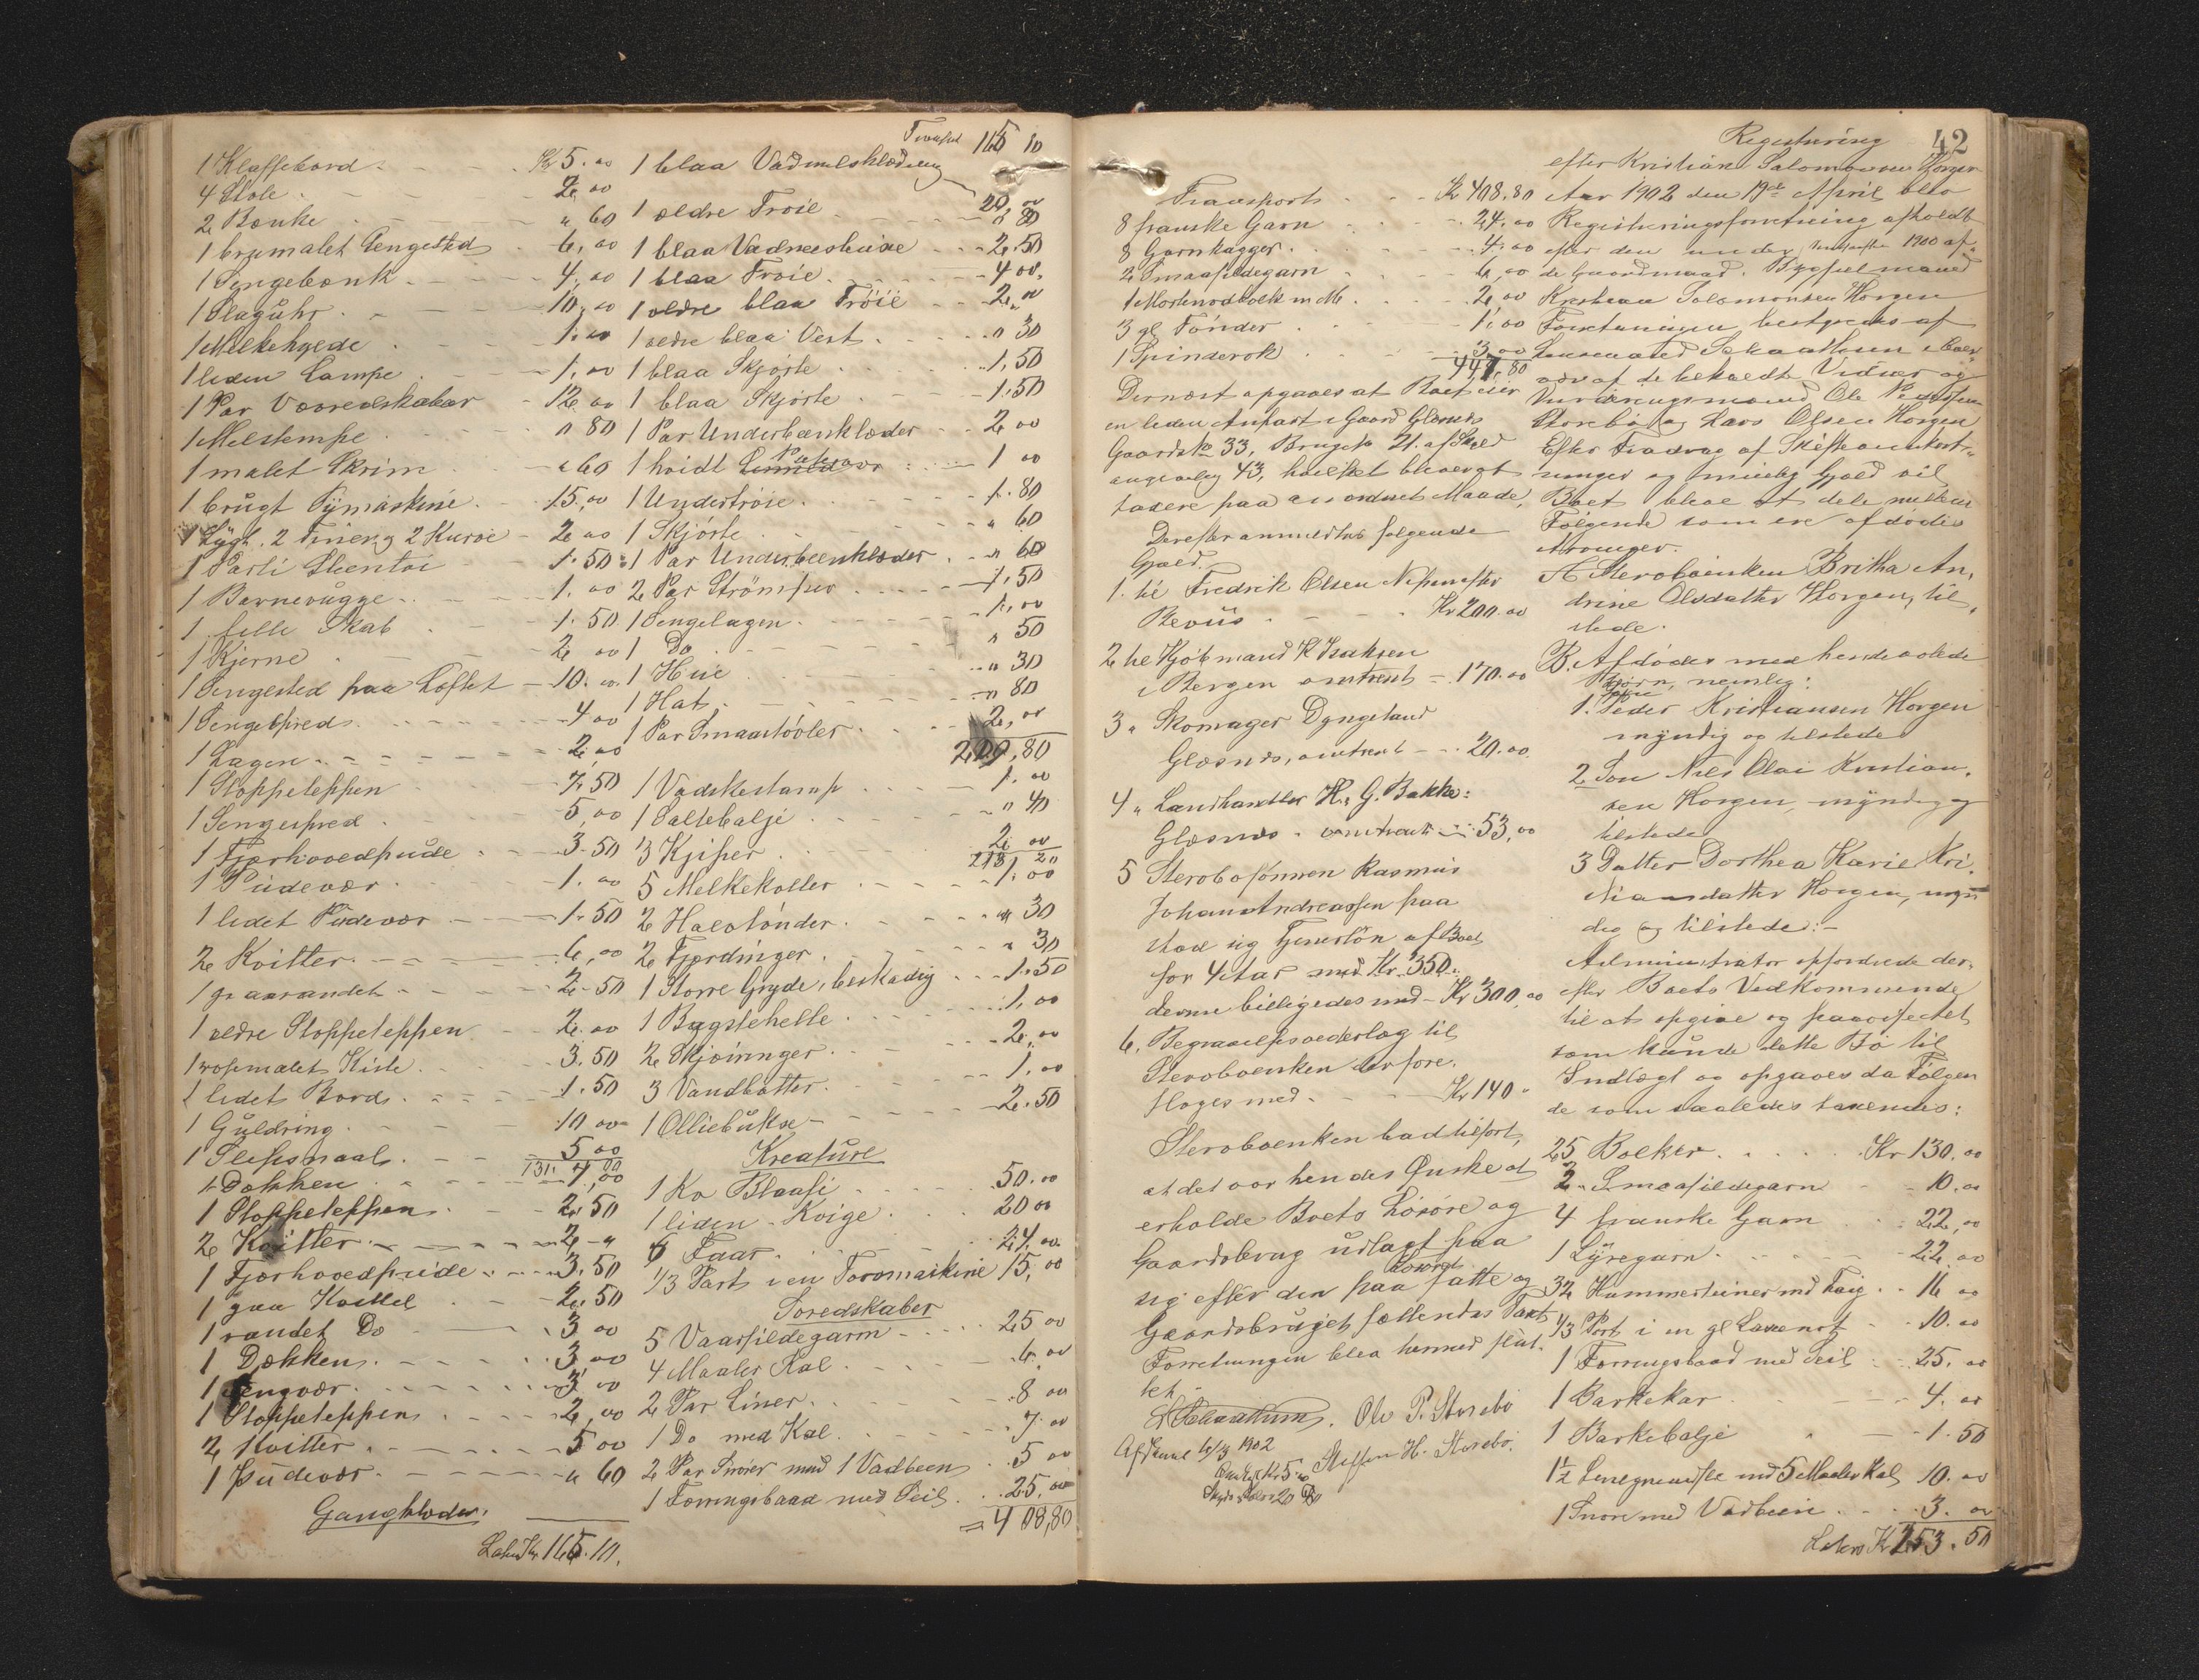 1 Klaffebord - - - Kr 5.00
4 Stole - - - 2,00
2 Bænke - - - " 60
1 brunmalet Sengested - 6,00
1 Sengebænk - - - 4,00
1 Slaguhr - - - 10,00
1 Melkehylde - - - 1.00
1 liden Lampe - - - 1,00
1 Par Vævredskaber - 12 00
1 Melstampe - - - " 80
1 malet Skrin - - - " 60
1 brugt Symaskine - 15,00
1 Lygt. 2 Tiner og 2 Kurve - 2 00
1 Parti Steentøi - 1.50
1 Barnevugge - - - 1.00
1 lille Skab - - - 1.50
1 Kjerne - - - 2 00
1 Sengested paa Loftet - 10.00
1 Sengespred - - - 4 00
1 Lagen - - - 2,00
1 Stoppeteppen - - - 7,50
1 Sengespred - - - 5,00
1 Fjærhovedpude - - - 3.50
1 Pudevær - - - 1.00
1 lidet Pudevær - - - 1.50
2 Kvitler - - - 6,00
1 graarandet - - - 2.50
1 ældre Stoppeteppen - 2.00
1 rosemalet Kiste - 3.50
1 lidet Bord - - - 1.50
1 Guldring - - - 10 00
1 Slipsnaal - - - 5 00
131.00
1 Dækken - - - 4,00
1 Stoppeteppen - - - 2,50
2 Kvitler - - - 2 - "
1 Fjærhovedpude - - - 3.50
1 graa Kvittel - - - 2.50
1 randet Do - - - 3 00
1 Dækken - - - 3,00
1 Sengvær - - - 3 00
1 Stoppeteppen - - - 2,00
2 Kvitler - - - 5 00
1 Pudevær - - - " 60
Gangklæder.
Latus Kr 165.10.
Transport 165 10
1 blaa Vadmelsklædning
20,00
1 ældre Trøie - - - " 80
1 blaa Vadmelsbuxe - - 2.50
1 blaa Trøie - - - 4 00.
1 ældre blaa Trøie - - 2,00
1 ældre blaa Vest - - - " 30
1 blaa Skjorte - - - 1,50
1 blaa Skjorte - - - 1.50
1 Par Underbenklæder - 2 00
1 hvidt - - - 1 00
1 Undertrøie - - - 1.80
1 Skjorte - - - " 60
1 Par Underbeenklæder - " 60
2 Par Strømper - - - 1.50
1 Sengelagen - - - 1,00
1 Do - - - " 50
1 Hue - - - " 30
1 Hat - - - " 80
1 Par Smaastøvler - - 2,00
209,80
1 Vadskestamp - - - 1.00
1 Saltebalje - - - " 40
3 Kjiper - - - 2 00
213 20
5 Melkekoller - - - 1.00
2 Halvtønder - - - " 30
2 Fjerdinger - - - " 30
1 Større Gryde, beskadig - - 1.50
1 Bagstehelle - - - 1,00
2 Skjæringer - - - 2,00
3 Vandbøtter - - - 1.00
1 Olliebukse - - - 2.50
Kreature
1 Ko Blaasi - - - 50.00
1 liden Kvige - - - 20 00
6 Faar - - - 24,00
1/3 Part i en Torvmaskine 15,00
Søredskaber
5 Vaarsildegarn - - - 25 00
4 Maaler Kal - - - 6.00
2 Par Liner - - - 8 00
1 Do med Kal - - - 7.00
2 Par Snører med 1 Vadbeen - 5 00
1 Færingsbaad med Seil - - 25,00
= 408,80
Transport - - Kr 408.80
8 franske Garn - - - 24.00
8 Garnkagger - - - 4.00
2 Smaasildegarn - - - 6,00
1 m M. - - - 2,00
3 gl Tønder - - - 1,00
1 Spinderok - - - 3,00
447,80
Dernæst opgaves at Boet eier
en liden Anpart i Gaard Glesnæs
Gaards No 33, Brugs No 21. af Skyld
angivelig 43, hvilket blev at
taxere paa anordnet Maade,
Derefter anmeldtes følgende
Gjæld.
1. til Fredrik Olsen
- - Kr 200.00
2 til Kjøbmand K Isaksen
i Bergen omtrent - 170.00
3 " Skomager Dyngeland
Glæsnæs, omtrent - - 20.00
4 " Landhandler H. G. Bakke:
Glæsnæs - omtrent - 53,00
5 Stervbosønnen Rasmus
Johan Andreassen paa
stod sig Tjenerløn af Boet
for 4 Aar med Kr. 350.
denne billigedes med - Kr 300,00
6. Begravelsesvederlag til
Stervboenken
sloges med - - - Kr 140 "
Stervboenken bad tilført,
at det var hendes Ønske at
erholde Boets Løsøre og
Gaardsbrug udlagt paa
sig efter den paa Løsøret satte og
Gaardsbruget fættendes Taxt
Forretningen blev hermed slut-
tet.
Ole P. Storebø
Steffen H. Storebø.
6/3 1902
42
Registrering
efter Kristian Salomonsen Horgen
Aar 1902 den 19de April blev
Registreringsforretning afholdt
efter den under 1900 af-
de Gaardmand. Bygselmand
Kristian Salomonsen Horgen
Forretningen bestyredes af
Lensmand i Over-
vær af de tilkaldte Vidner og
Vurderingsmænd Ole Pedersen
Storebø og Lars Olsen Horgen
Efter Fradrag af Skifteomkost-
ninger og mulig Gjæld vil
Boet blive at dele mellem
Følgende som ere afdødes
Arvinger.
A Stervboenken Britha An-
drine Olsdatter Horgen, til-
stede.
B. Afdødes med hende avlede
Børn, nemlig:
1. Søn Peder Kristiansen Horgen
myndig og tilstede
2 Søn Nils Olai Kristian-
sen Horgen, myndig og
tilstede
3 Datter Dorthea Karie Kri-
stiansdatter Horgen, myn
dig og tilstede. -
Administrator opfordrede der-
efter Boets Vedkommende
til at opgive og
som kunde dette Bo til
Indtægt og opgaves da Følgen
de som saaledes taxeredes:
25 Bolker - - - Kr 130.00
2 Smaasildegarn - - 10.00
4 franske Garn - - 22,00
1 Lyregarn - - - 22,00
32 Hummerteiner med Taug - - 16 00
1/3 Part i en gl Laxenot - - 10.00
1 Færingsbaad med Seil - - 25.00
1 Barkekar - - - 4.00
1 Barkebalje - - - 1.50
med 5 Maaler Kal 10.00
1 Snøre med Vadbeen - - 3.00
Latus Kr 253.50